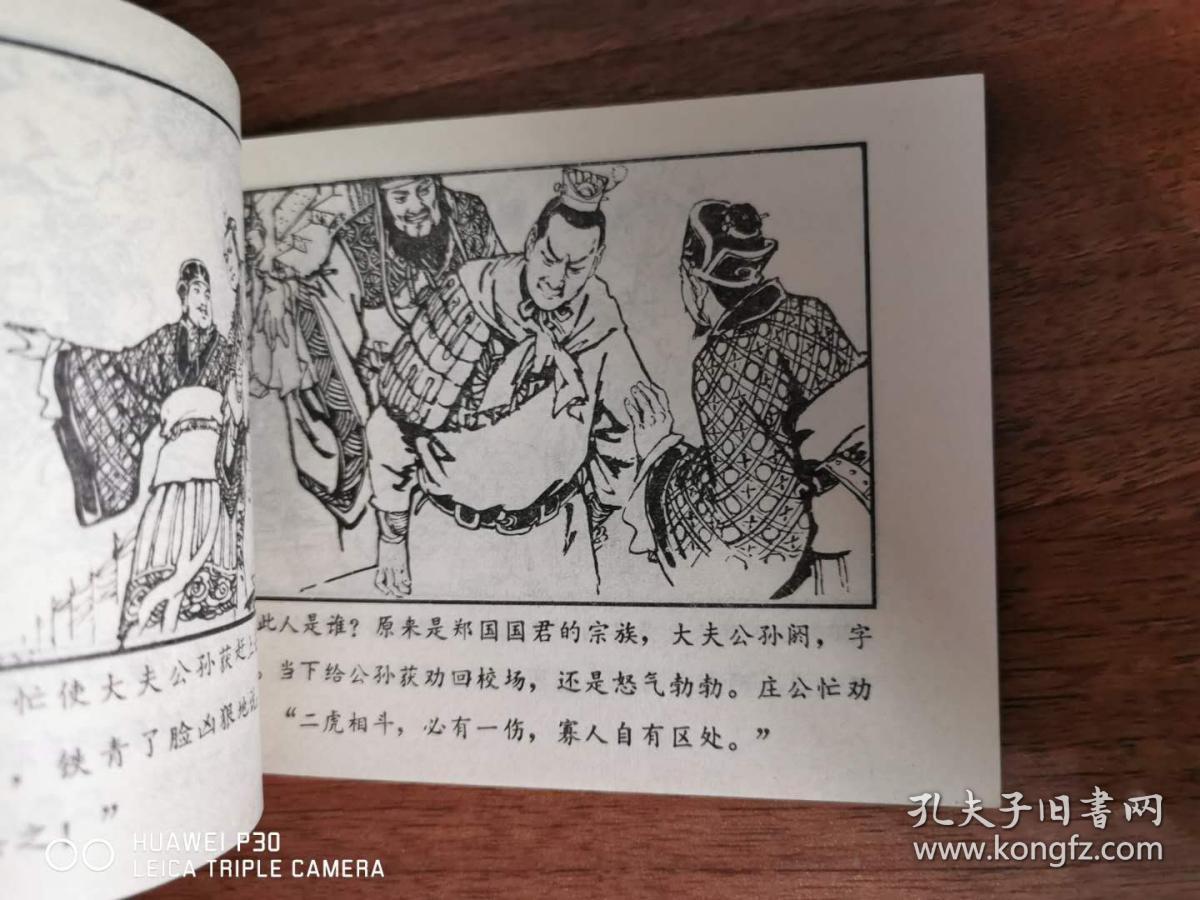 忙使大夫公孙获赶上
，铁青了脸凶狠地说
之！”
此人是谁？原来是郑国国君的宗族，大夫公孙阏，字
。当下给公孙获劝回校场，还是怒气勃勃。庄公忙劝
“二虎相斗，必有一伤，寡人自有区处。”
HUAWEI P30
LEICA TRIPLE CAMERA
孔夫子旧书网
www.kongfz.com